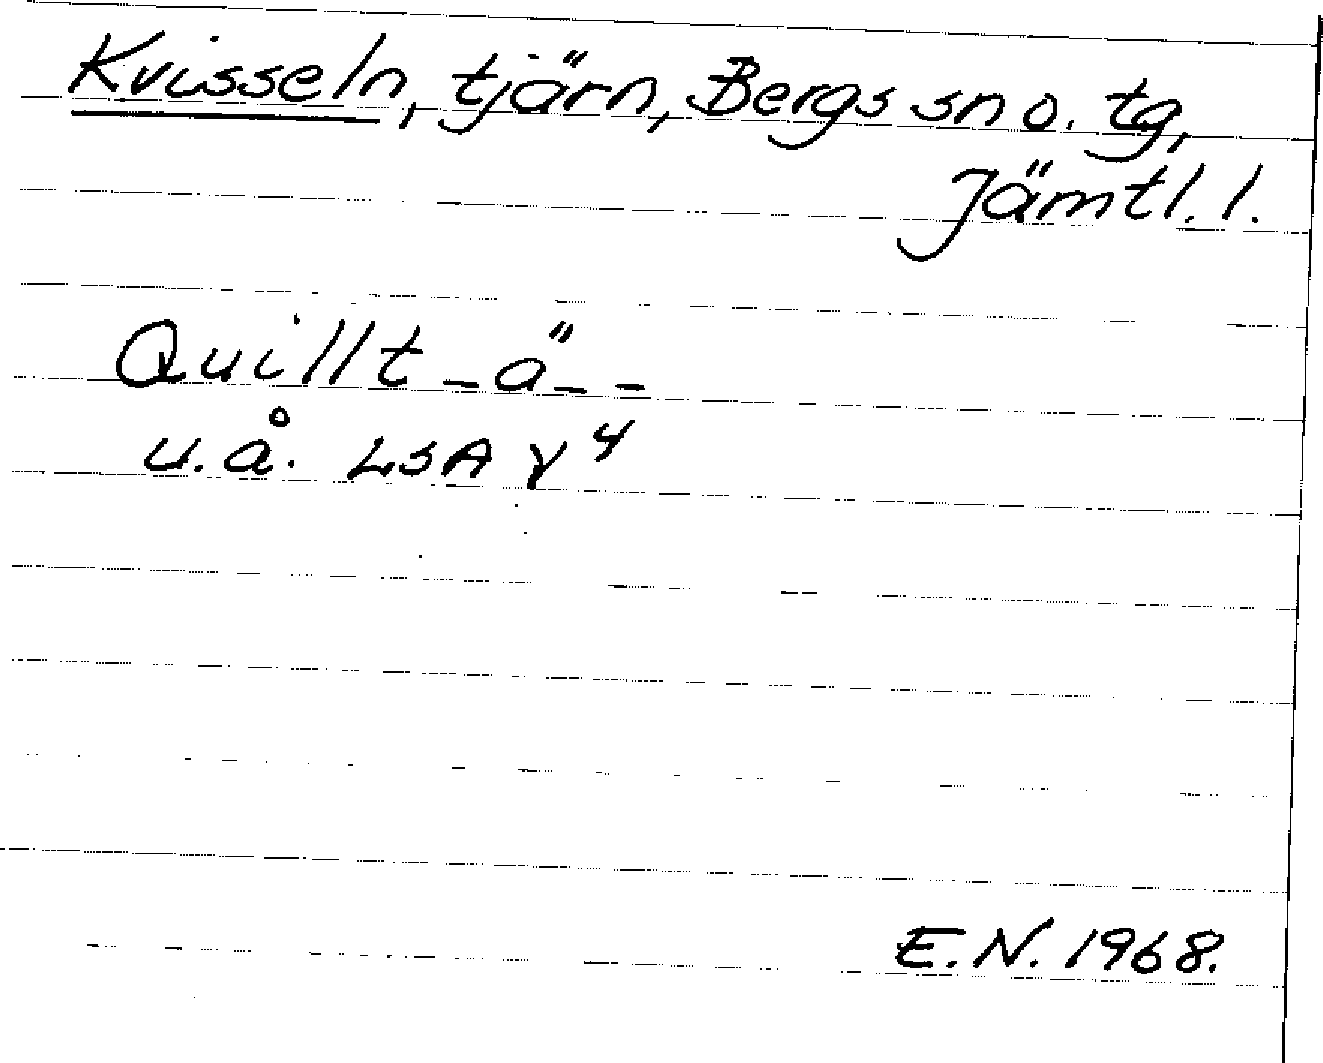 Kvisseln, tjärn, Bergs sn o. tg,
Jämtl. l.
Quillt _ ä _ _
u. å. LSA γ 4
E.N. 1968.